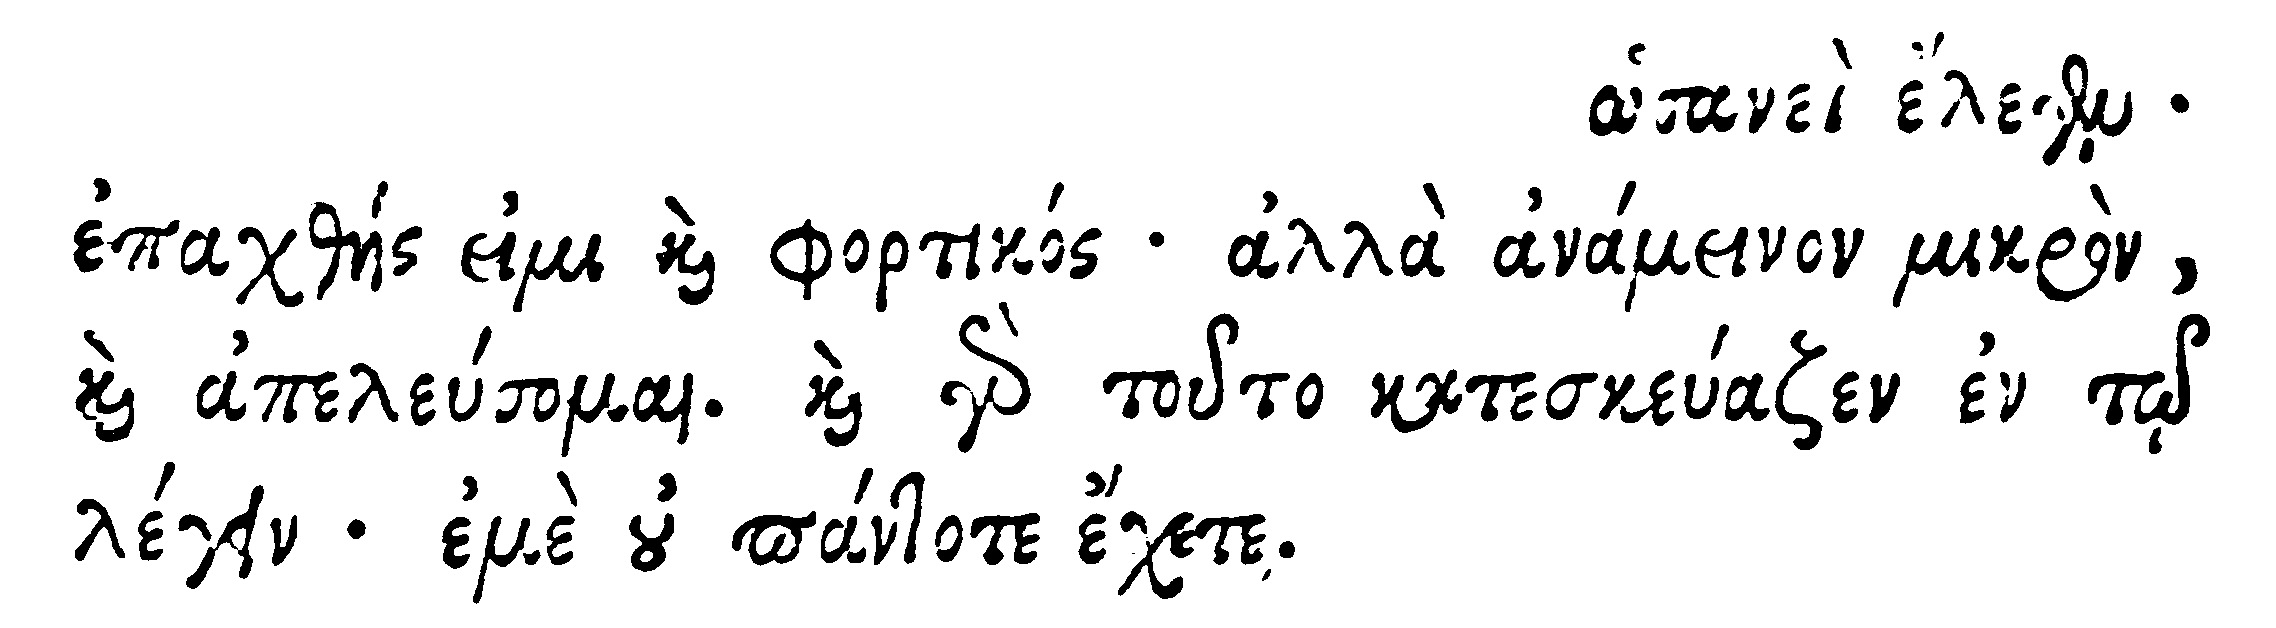 ὡσανεὶ ἔλεγεν ·
ἐπαχθής εἰμι καὶ φορτικός · ἀλλὰ ἀνάμεινον μικρὸν,
καὶ ἀπελεύσομαι. καὶ γὰρ τοῦτο κατεσκεύαζεν ἐν τῷ
λέγειν · ἐμὲ οὐ πάντοτε ἔχετε.